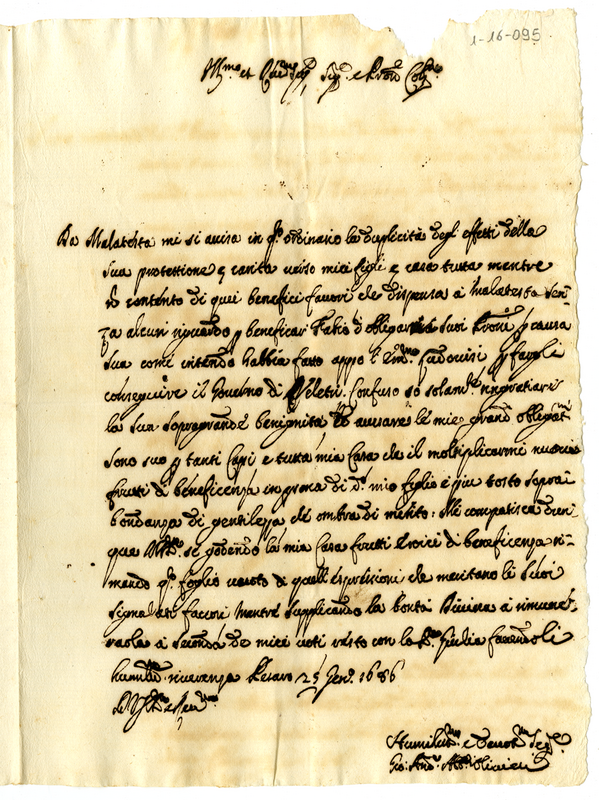 1-16-095
Ill.mo et Rev.mo Sig.r Sig.r e P.ron Col.mo
Da Malatesta mi si avisa in q.o ordinario la duplicità degl'effetti della
sua protettione e carità verso miei figli e casa tutta mentre
contento di quei benefici favori che dispensa a Malatesta sen-
za alcun riguardo p beneficar l'altro d'obligar suoi Proni p causa
sua come intendo habbia fatto appo l'Em.mo Ludovisi p fargli
conseguire il Governo di Veletri. Confuso io solam.te ringratiare
la sua sopragrande benignità avisare le mie grandi obligat.ni
sono suo p tanti Capi e tutta mia Casa che il moltiplicarmi nuovi
frutti di beneficenza in prona di d.o mio figlio è piu tosto soprab-
bondanza di gentilezza che ombra di merito: Mi compatisca dun-
que se godendo la mia Casa frutti di beneficenza ri-
mando q.o foglio vuoto di quell'espressioni che meritano li suoi
signalati favori mentre supplicando la bontà Divina a rimune-
rarla a seconda de miei voti resto con facendoli
humiliss.a riverenza Pesaro 25 Gen.o 1686
Di V.S. Ill.ma e Rev.ma
Humiliss.o e Devot.mo Ser.e
Gio: And.a Ab.e Olivieri